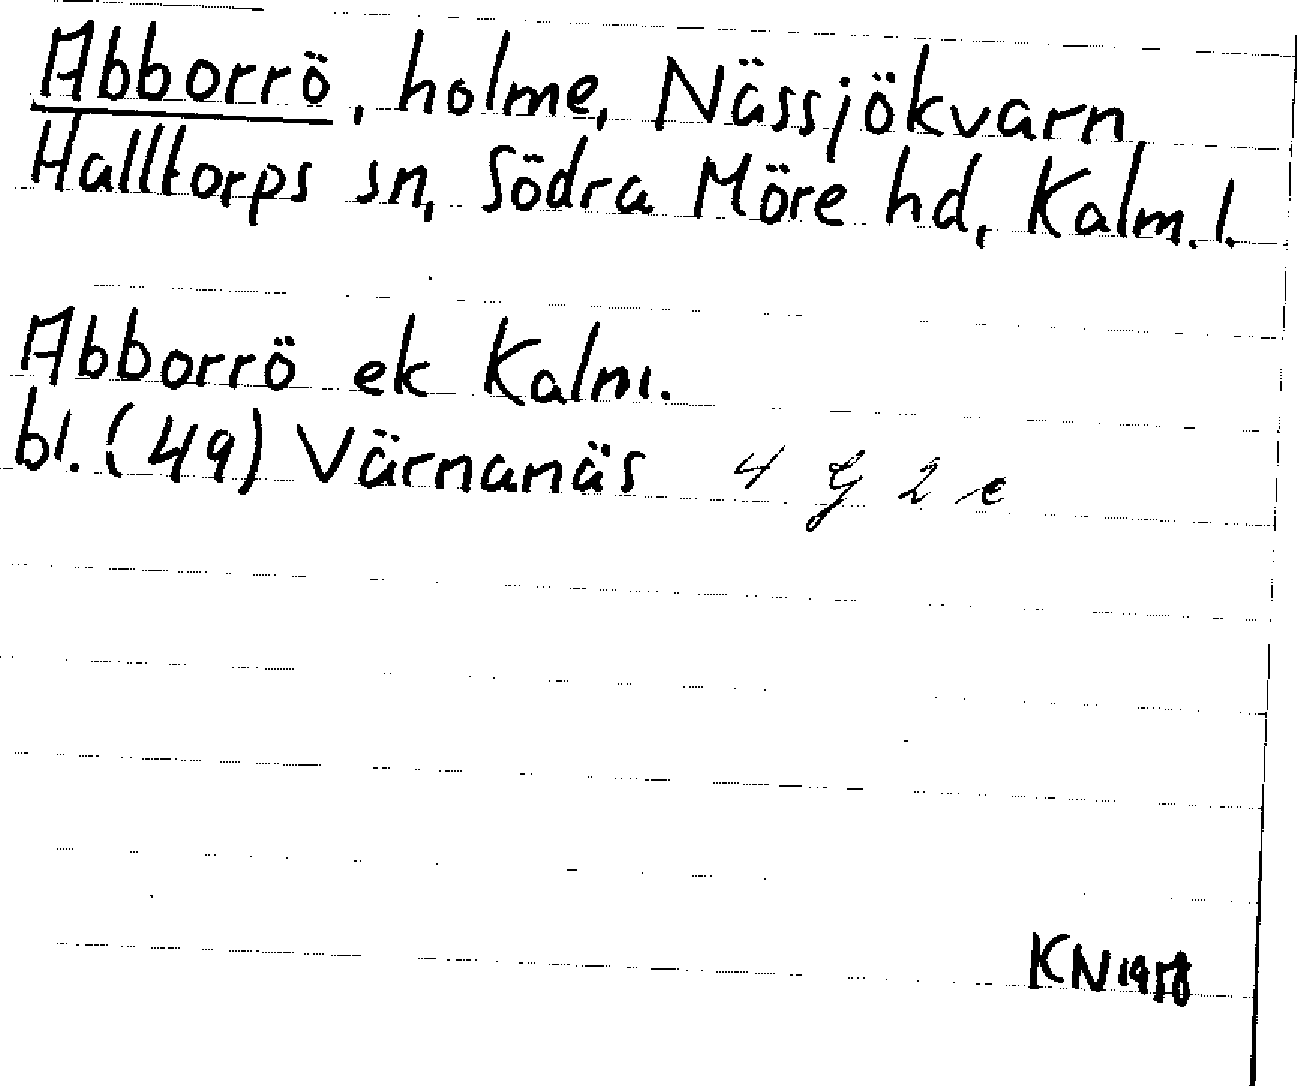 Abborrö, holme, Nässjökvarn,
Halltorps sn, Södra Möre hd, Kalm. l.
Abborrö ek Kalm.
bl. (49) Värnanäs 4 G 2 e
KN 1958